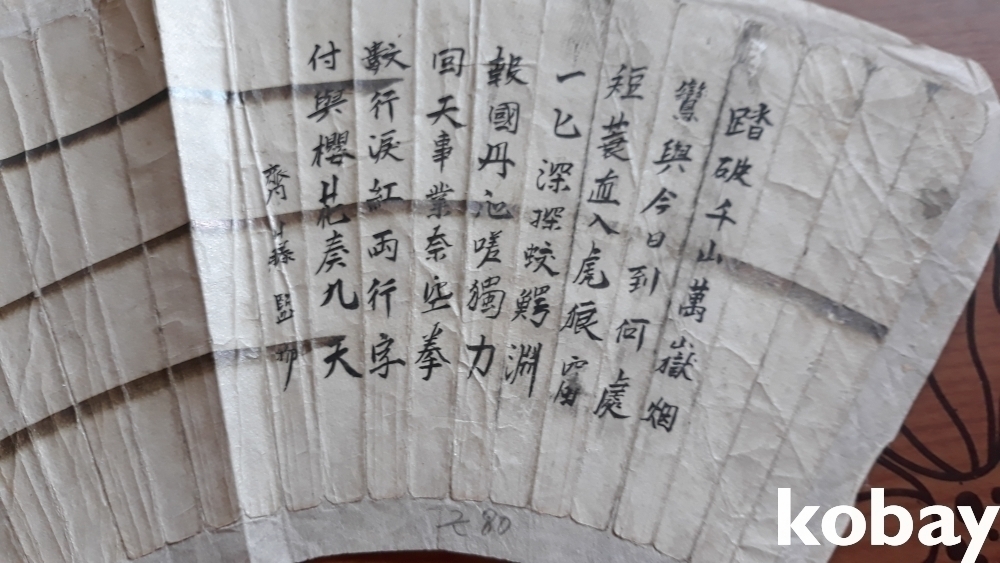 踏破千山萬嶽烟
鸞與今日到何處
短蓑直入虎狼窟
一匕深探蛟鰐淵
報國丹心嗟獨力
回天事業奈空拳
數行淚紅兩行字
付與櫻花奏九天
齊藤監物
80
kobay